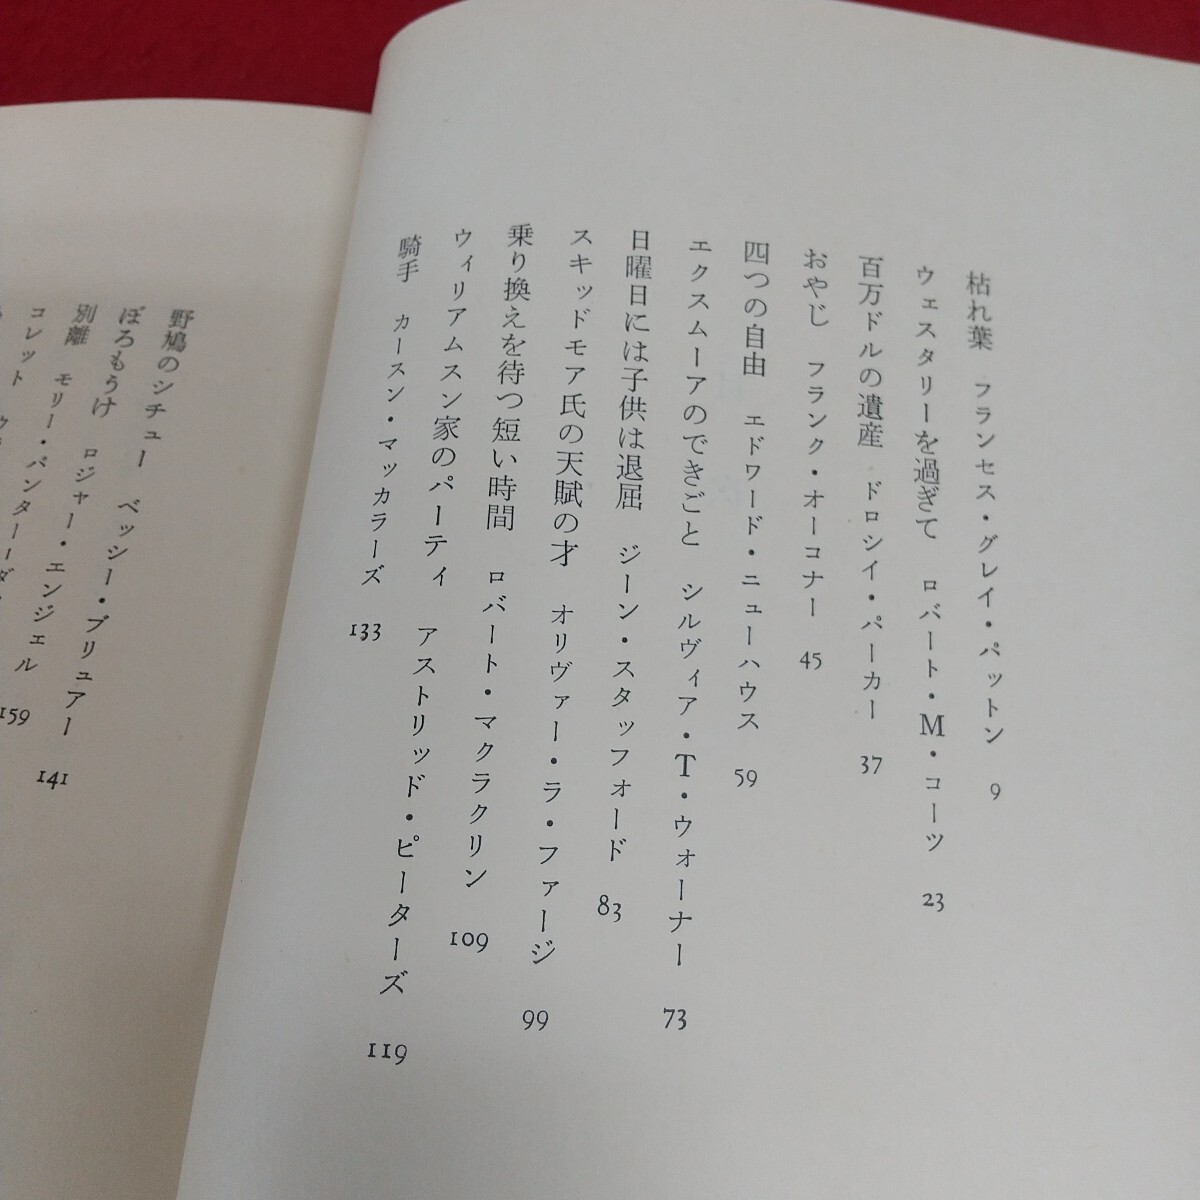 枯れ葉　フランセス・グレイ・パットン　9
ウェスタリーを過ぎて　ロバート・M・コーツ　23
百万ドルの遺産　ドロシイ・パーカー　37
おやじ　フランク・オーコナー　45
四つの自由　エドワード・ニューハウス　59
エクスムーアのできごと　シルヴィア・T・ウォーナー　73
日曜日には子供は退屈　ジーン・スタッフォード　83
スキッドモア氏の天賦の才　オリヴァー・ラ・ファージ　99
乗り換えを待つ短い時間　ロバート・マクラクリン　109
ウィリアムスン家のパーティ　アストリッド・ピーターズ　119
騎手　カースン・マッカラーズ　133
野鳩のシチュー　ベッシー・ブリュアー　141
ぼろもうけ　ロジャー・エンジェル　159
別離　モリー・パンター＝ダ
コレット